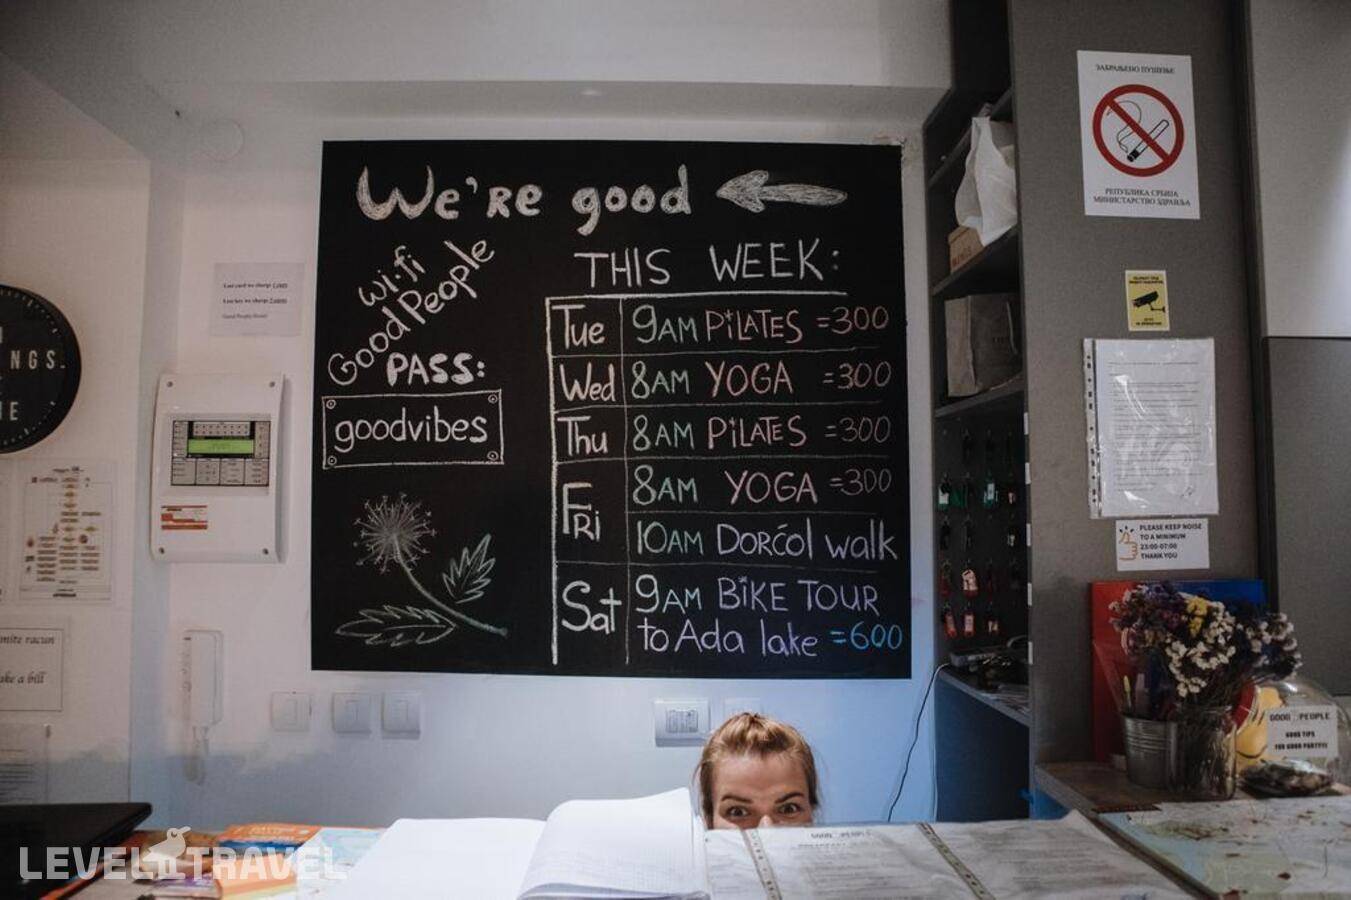 We're good
wi-fi
Good People
PASS:
goodvibes
THIS WEEK:
Tue 9AM PiLATES =300
Wed 8AM YOGA =300
Thu 8AM PiLATES =300
Fri 8AM YOGA =300
10AM Dorćol walk
Sat 9AM BiKE TOUR
to Ada lake =600
ЗАБРАЊЕНО ПУШЕЊЕ
РЕПУБЛИКА СРБИЈА
МИНИСТАРСТВО ЗДРАВЉА
PLEASE KEEP NOISE
TO A MINIMUM
23:00-07:00
THANK YOU
GOOD PEOPLE
GOOD TIPS
FOR GOOD PARTY!!!
NGS
ME
racun
a bill
GOOD PEOPLE
LEVEL TRAVEL